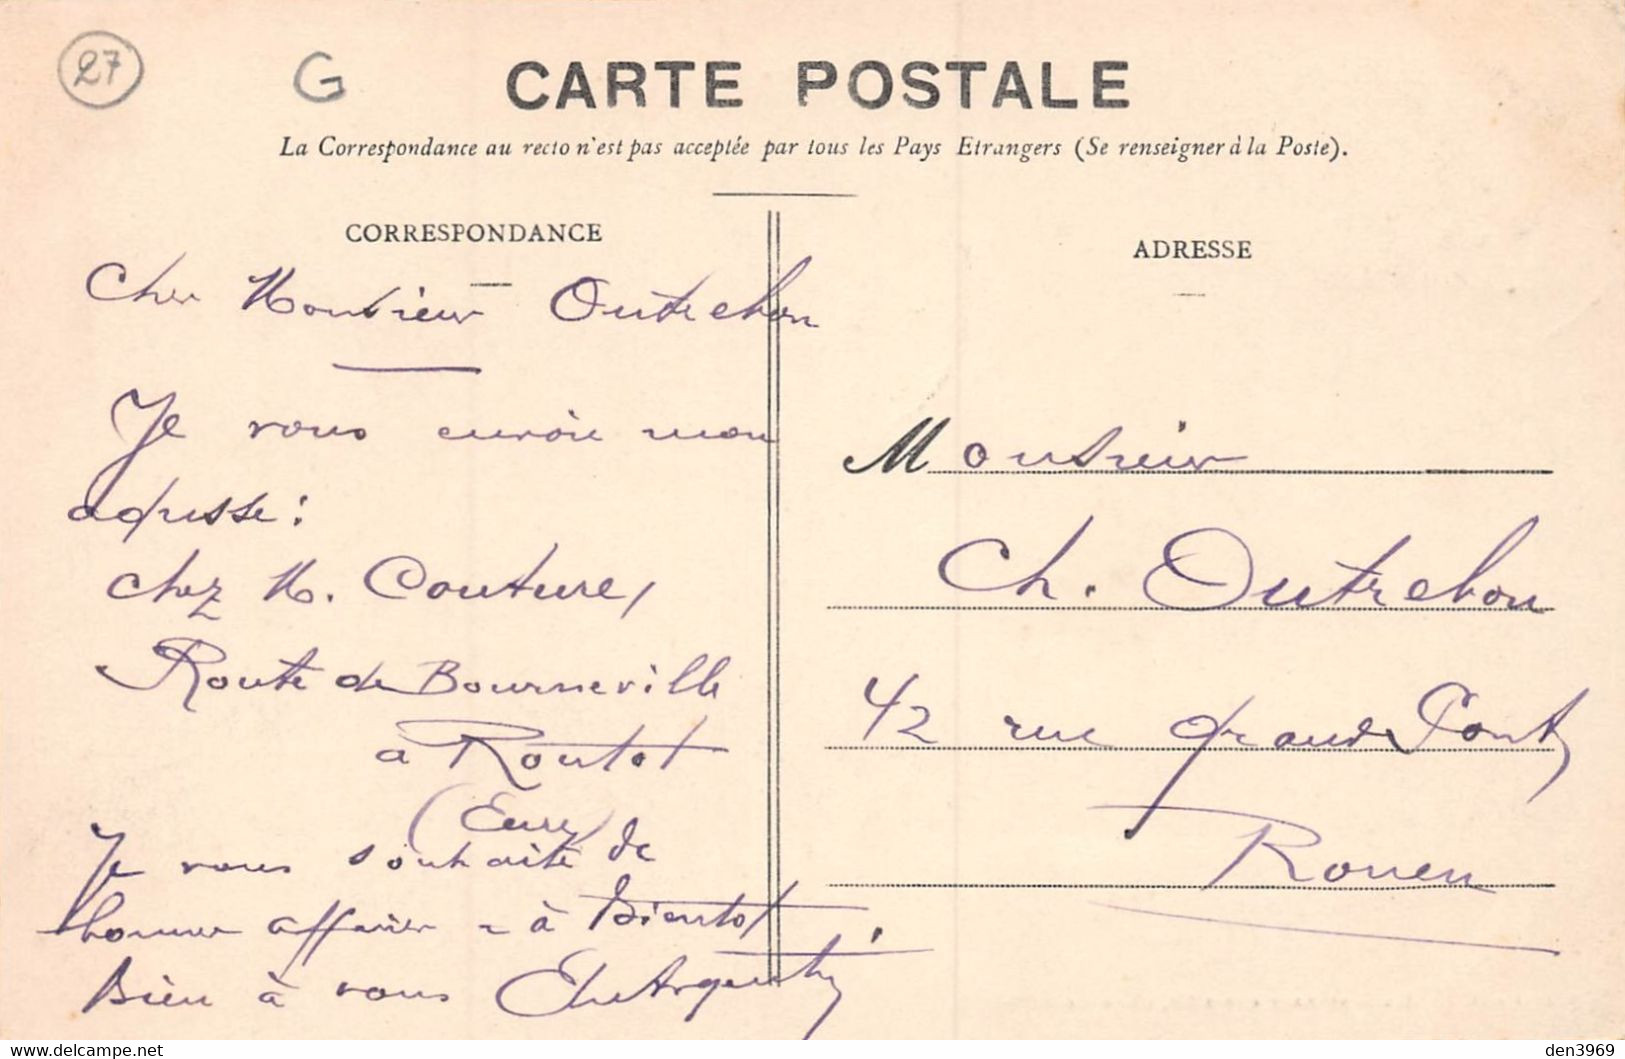 27
G
CARTE POSTALE
La Correspondance au recto n'est pas acceptée par tous les Pays Etrangers (Se renseigner à la Poste).
CORRESPONDANCE
Cher Monsieur Outrebon
Je vous envoie mon
adresse :
chez M. Couture,
Route de Bourneville
à Routot
(Eure)
Je vous souhaite de
bonnes affaires - à bientôt
Bien à vous
ADRESSE
Monsieur
Ch. Outrebon
42 rue Grand Pont
Rouen
den3969